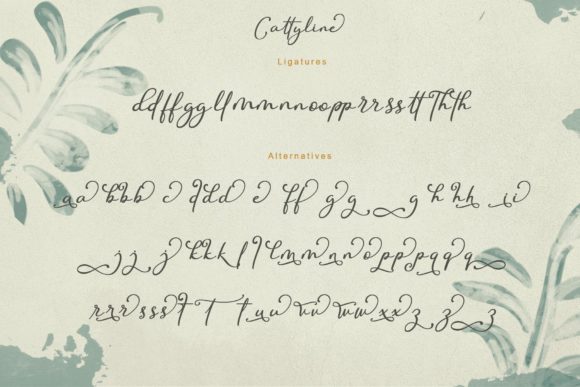 Cattyline
Ligatures
ddffggllmmnnoopprrssttThth
Alternatives
aa bbb c ddd c ff gg g h hh i i
j j j kkk l l l m m n n o p p p q q q
r r r s s s t T t u u v u w x x z z z